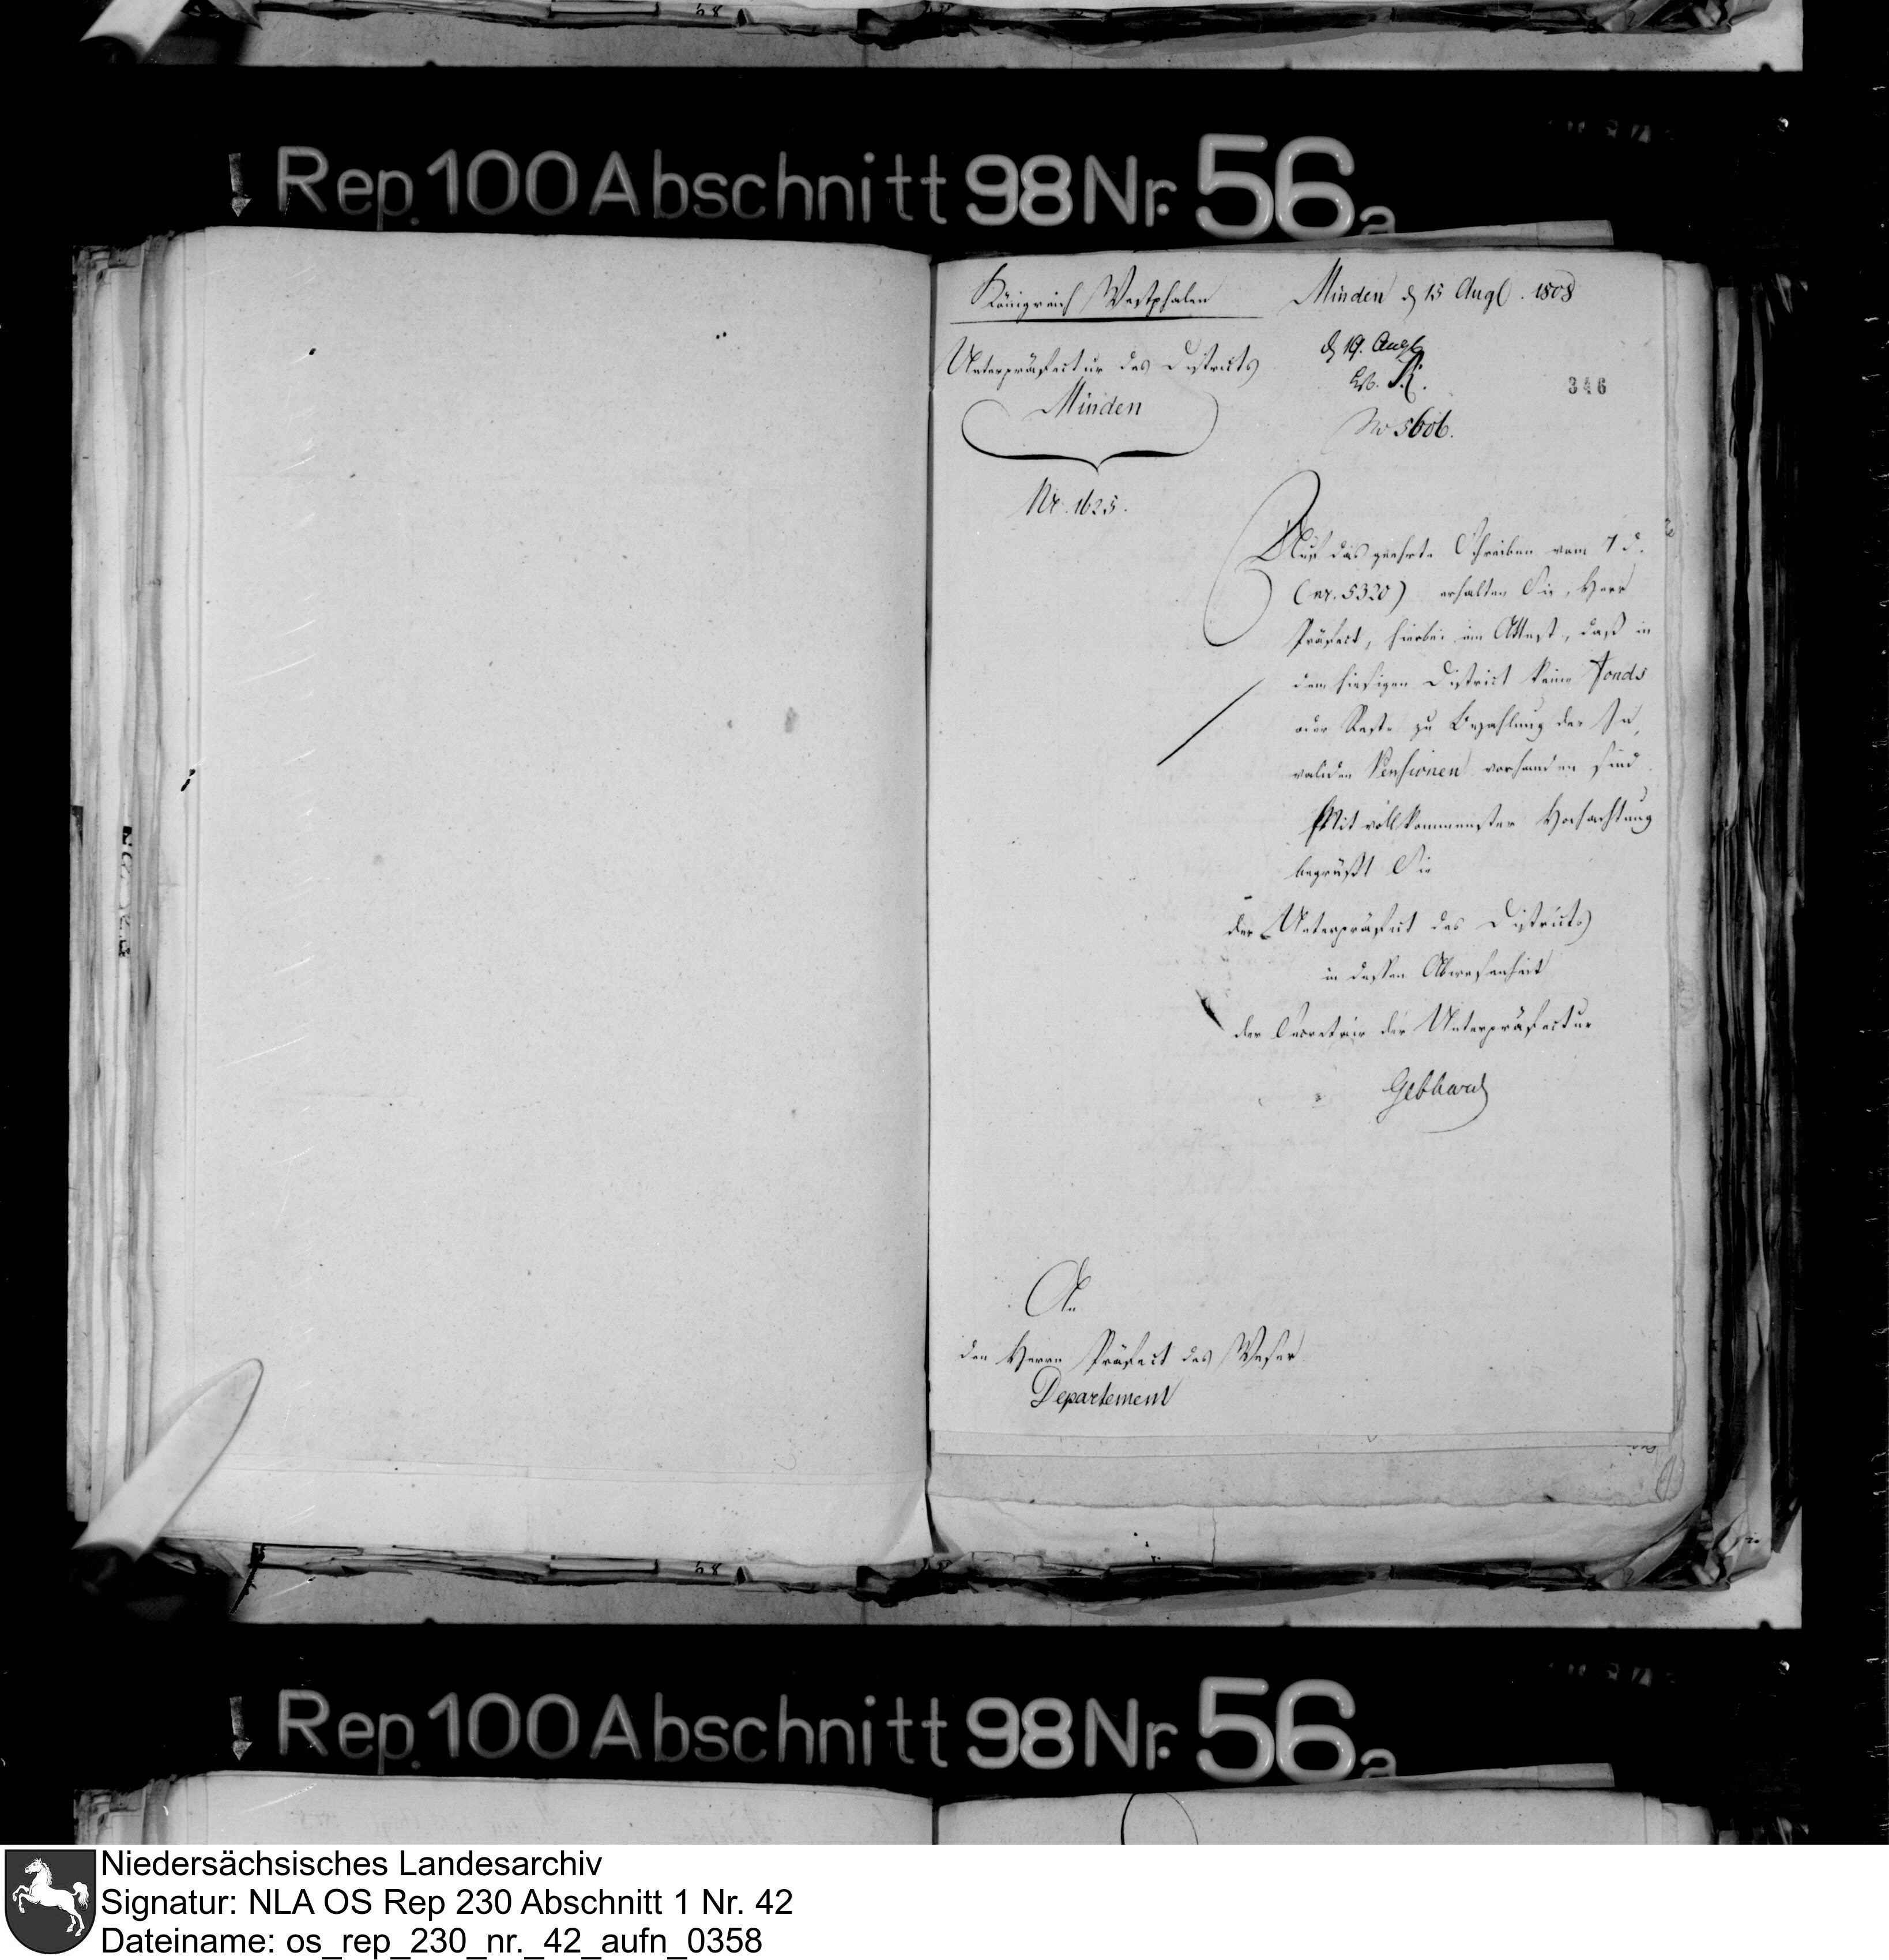 Rep. 100 Abschnitt 98 Nr. 56a
Königreich Westphalen
Minden d 15 Augl. 1808
Unterpräfectur des Districts
Minden
Nr. 1625.
d 19. Augl
R.
346
No 5606.
Auf das geehrte Schreiben vom 7 d.
(nr. 5320) erhalten Sie, Herr
Präfect, hierbei ein Attest, daß in
dem hiesigen District keine Fonds
oder Reste zu Bezahlung der In-
validen Pensionen vorhanden sind.
Mit vollkommenster Hochachtung
begrüßt Sie
der Unterpräfect des Districts
in dessen Abwesenheit
der Secretair der Unterpräfectur
Gebhard
An
den Herrn Präfect des Weser
Departement
Rep. 100 Abschnitt 98 Nr. 56a
Niedersächsisches Landesarchiv
Signatur: NLA OS Rep 230 Abschnitt 1 Nr. 42
Dateiname: os_rep_230_nr._42_aufn_0358